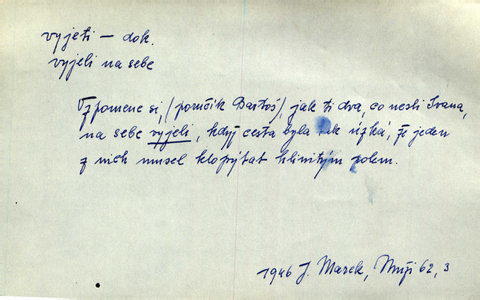 vyjeti – dok.
vyjeli na sebe
Vzpomene si, (poručík Bartoš), jak ti dva, co nesli Ivana,
na sebe vyjeli, když cesta byla tak úzká, že jeden
z nich musel klopýtat hlinitým polem.
1946 J. Marek, Muži 62, 3